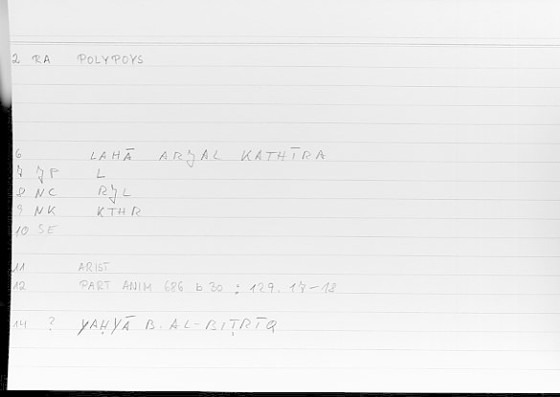 2 RA POLYPOYS
6 LAHĀ ARJAL KATHĪRA
7 JP L
8 NC RJL
9 NK KTHR
10 SE
11 ARIST
12 PART ANIM 686 b 30 : 129. 17-18
14 ? YAḤYĀ B. AL-BIṬRĪQ